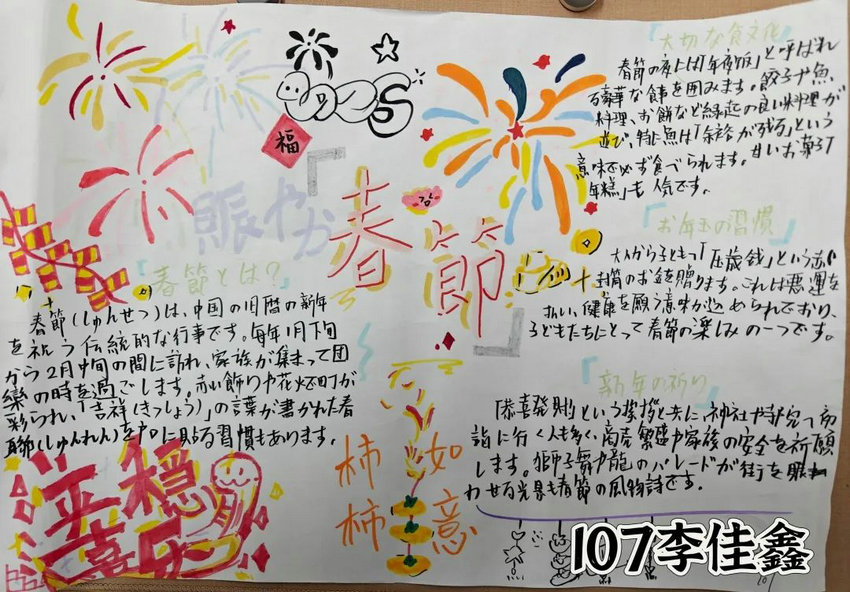 福
賑やか
『春節』
『春節とは?』
春節(しゅんせつ)は、中国の旧暦の新年
を祝う伝統的な行事です。毎年1月下旬
から2月中旬の間に訪れ、家族が集まって団
欒の時を過ごします。赤い飾りや花火が町が
彩られ、「吉祥(きっしょう)」の言葉が書かれた春
聯(しゅんれん)を戸に貼る習慣もあります。
平穏
喜乐
柿柿
如意
大切な食文化
春節の夜には「年夜饭」と呼ばれ
豪華な食事を囲みます。餃子や魚
料理、お餅など縁起の良い料理が
並び、特に魚は「余裕が残る」という
意味で必ず食べられます。甘いお菓子「
年糕」も人気です。
『お年玉の習慣』
大人から子ともへ「压歳钱」という赤い
封筒のお金を贈ります。これは悪運を
払い、健康を願う意味が込められており、
子どもたちにとって春節の楽しみの一つです。
『新年の祈り』
「恭喜發財」という挨拶と共に、神社や寺院へ初
詣に行く人も多く、商売繁盛や家族の安全を祈願
します。獅子舞や龍のパレードが街を賑
わせる光景も春節の風物詩です。
107李佳鑫